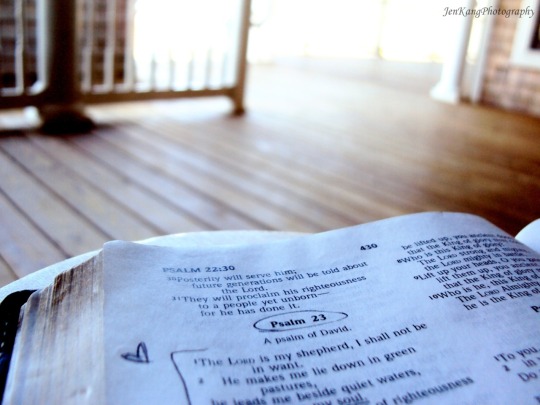 JenKangPhotography
PSALM 22:30
430
30 Posterity will serve him;
future generations will be told about
the Lord.
31 They will proclaim his righteousness
to a people yet unborn—
for he has done it.
Psalm 23
A psalm of David.
1 The LORD is my shepherd, I shall not be
in want.
2 He makes me lie down in green
pastures,
he leads me beside quiet waters,
my soul.
of righteousness
be lifted up, you ancient
that the King of glory
8 Who is this King of
The LORD strong
the LORD mighty in
9 Lift up your heads, O
lift them up, you
that the King of
10 Who is he, this
The LORD Almighty
he is the King
To you
in